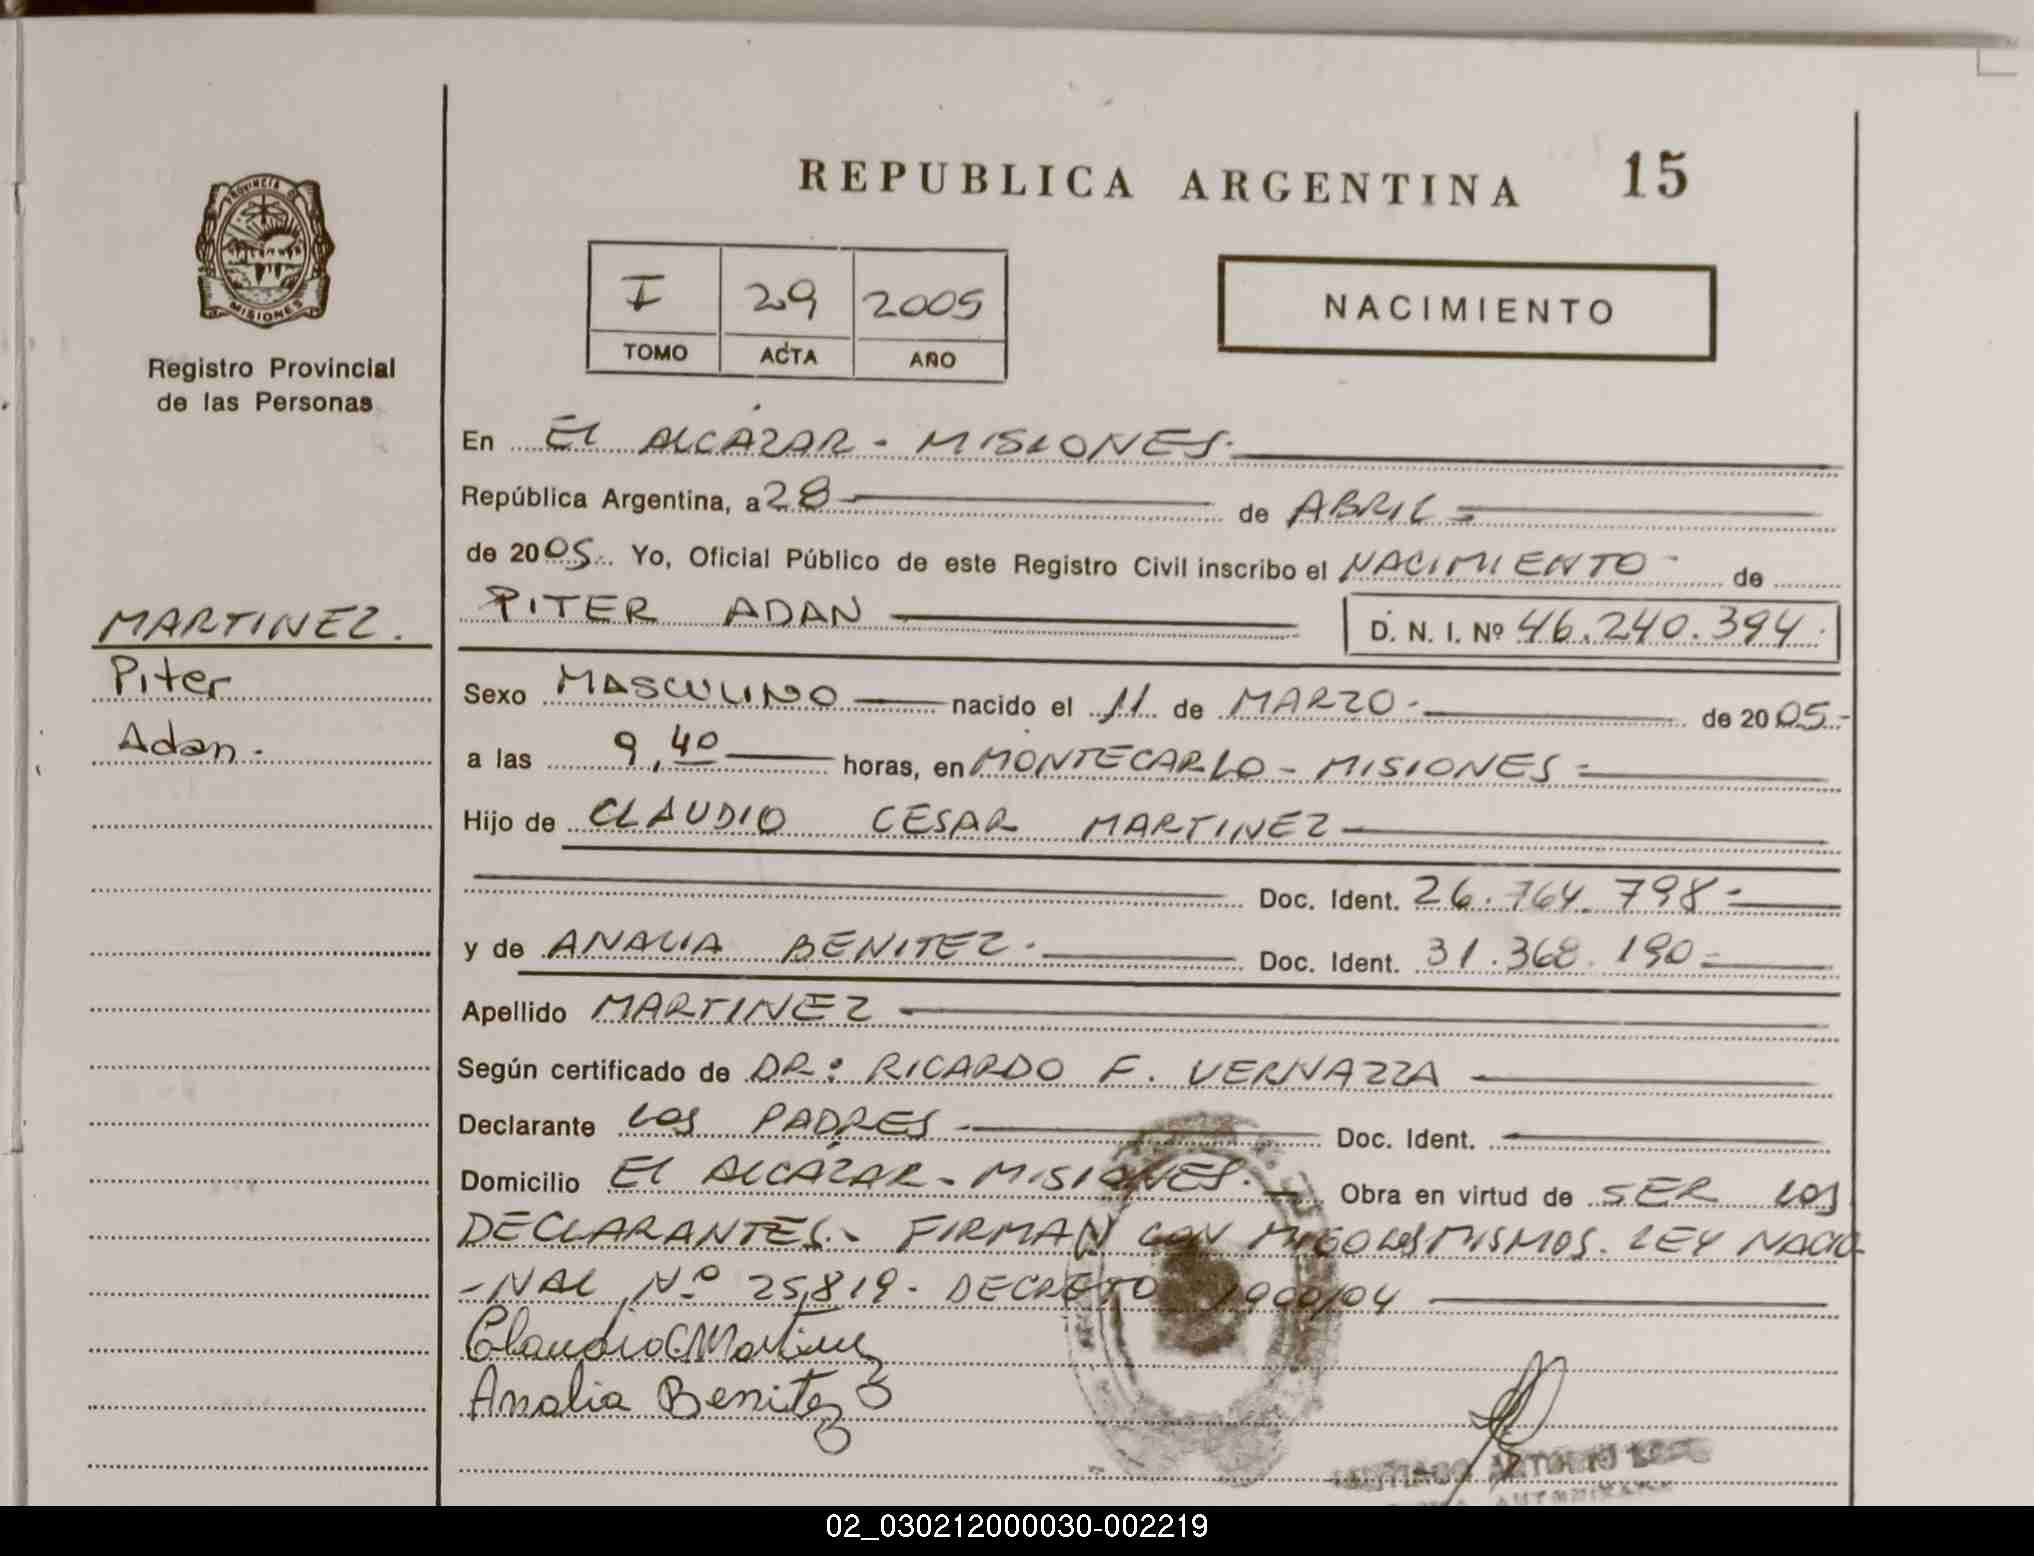 REPUBLICA ARGENTINA 15
PROVINCIA DE
MISIONES
Registro Provincial
de las Personas
I 29 2005
TOMO ACTA AÑO
NACIMIENTO
En El ALCAZAR - MISIONES.
República Argentina, a 28 de ABRIL
de 2005. Yo, Oficial Público de este Registro Civil inscribo el NACIMIENTO de
PITER ADAN D. N. I. Nº 46.240.394.
MARTINEZ.
Piter
Adan.-
Sexo MASCULINO nacido el 11 de MARZO. de 2005.-
a las 9,40 horas, en MONTECARLO - MISIONES
Hijo de CLAUDIO CESAR MARTINEZ
Doc. Ident. 26.764.798-
y de ANALIA BENITEZ. Doc. Ident. 31.368.190-
Apellido MARTINEZ
Según certificado de DR: RICARDO F. VERNAZZA
Declarante LOS PADRES Doc. Ident.
Domicilio El ALCAZAR - MISIONES. Obra en virtud de SER LOS
DECLARANTES.- FIRMAN CON MIGO LOS MISMOS. LEY NACIO
-NAL Nº 25,819 - DECRETO 1900/04
Claudio C Martinez
Analia Benitez
SANTIAGO ANTONIO
02_030212000030-002219